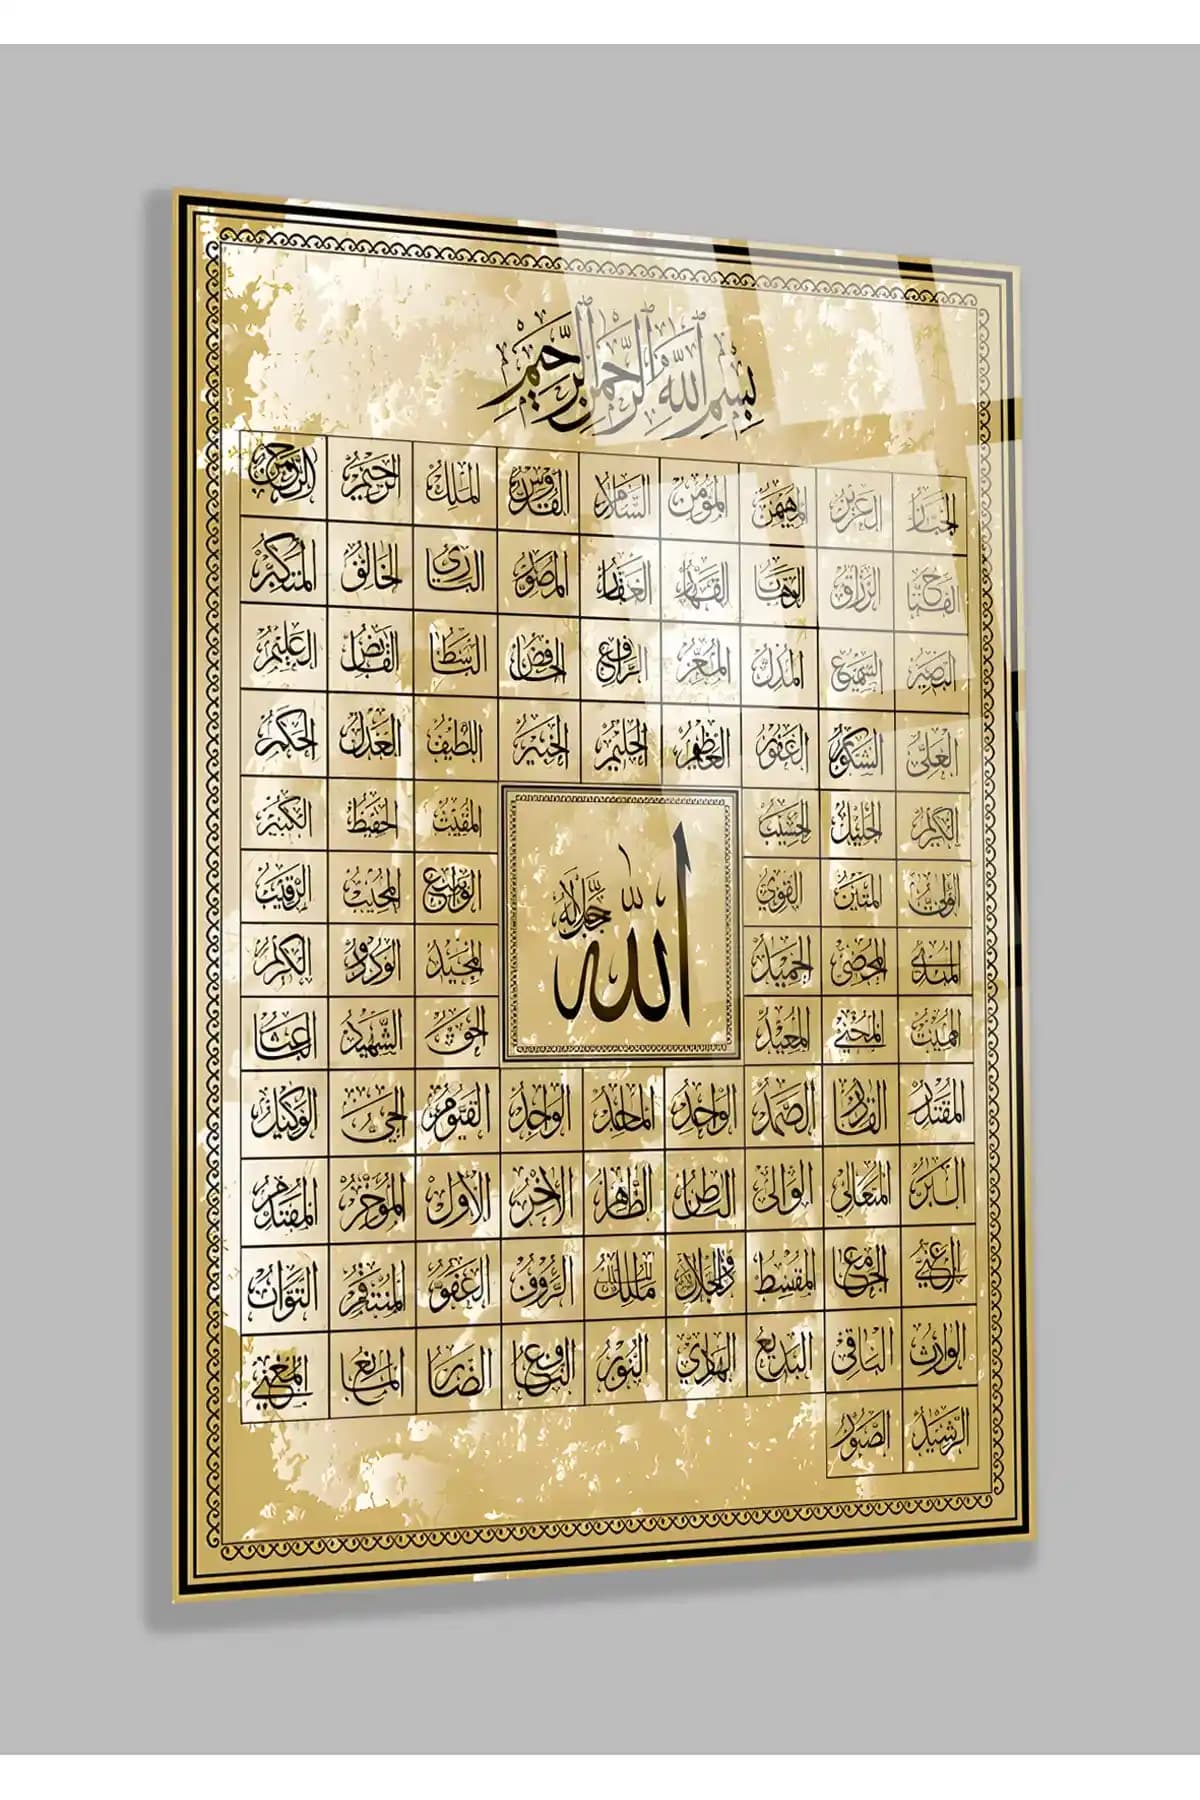 بِسْمِ اللَّهِ الرَّحْمَنِ الرَّحِيمِ
الرحمن الرحيم الملك القدوس السلام المؤمن المهيمن العزيز الجبار
المتكبر الخالق البارى المصور الغفار القهار الوهاب الرزاق الفتاح
العليم القابض الباسط الخافض الرافع المعز المذل السميع البصير
الحكم العدل اللطيف الخبير الحليم العظيم الغفور الشكور العلى
الكبير الحفيظ المقيت الحسيب الجليل الكريم
الرقيب المجيب الواسع القوي المتين الولي
الودود المجيد الحميد المحصى المبدئ
الباعث الشهيد الحق المعيد المحيي المميت
الله جل جلاله
الوكيل الحي القيوم الواجد الماجد الواحد الصمد القادر المقتدر
المقدم المؤخر الأول الآخر الظاهر الباطن الوالى المتعالى البر
التواب المنتقم العفو الرؤف مالك الملك ذو الجلال المقسط الجامع الغني
المغني المانع الضار النافع النور الهادي البديع الباقى الوارث
الصبور الرشيد